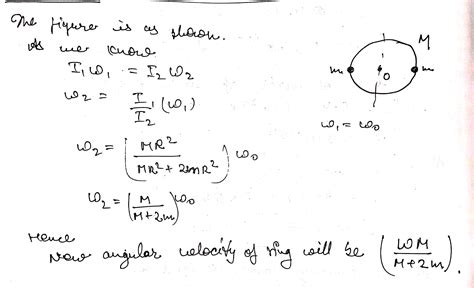 The figure is as shown.
As we know
I₁ω₁ = I₂ω₂
ω₂ = I₁/I₂ (ω₁)
ω₂ = (MR²/(MR² + 2mR²)) ω₀
ω₂ = (M/(M+2m)) ω₀
Hence
Now angular velocity of ring will be (ωM/(M+2m)).
M
m
O
m
ω₁ = ω₀